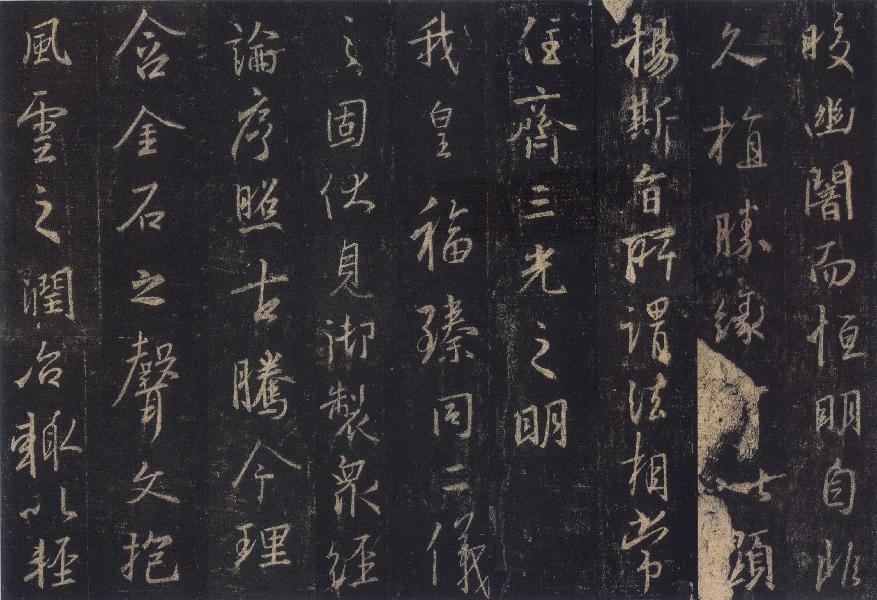 晈幽闇而恒明自非
久植勝緣以顯
揚斯旨所謂法相常
住齊三光之明
我皇福臻同二儀
之固伏見御製衆經
論序照古騰今理
含金石之聲文抱
風雲之潤治輒以輕